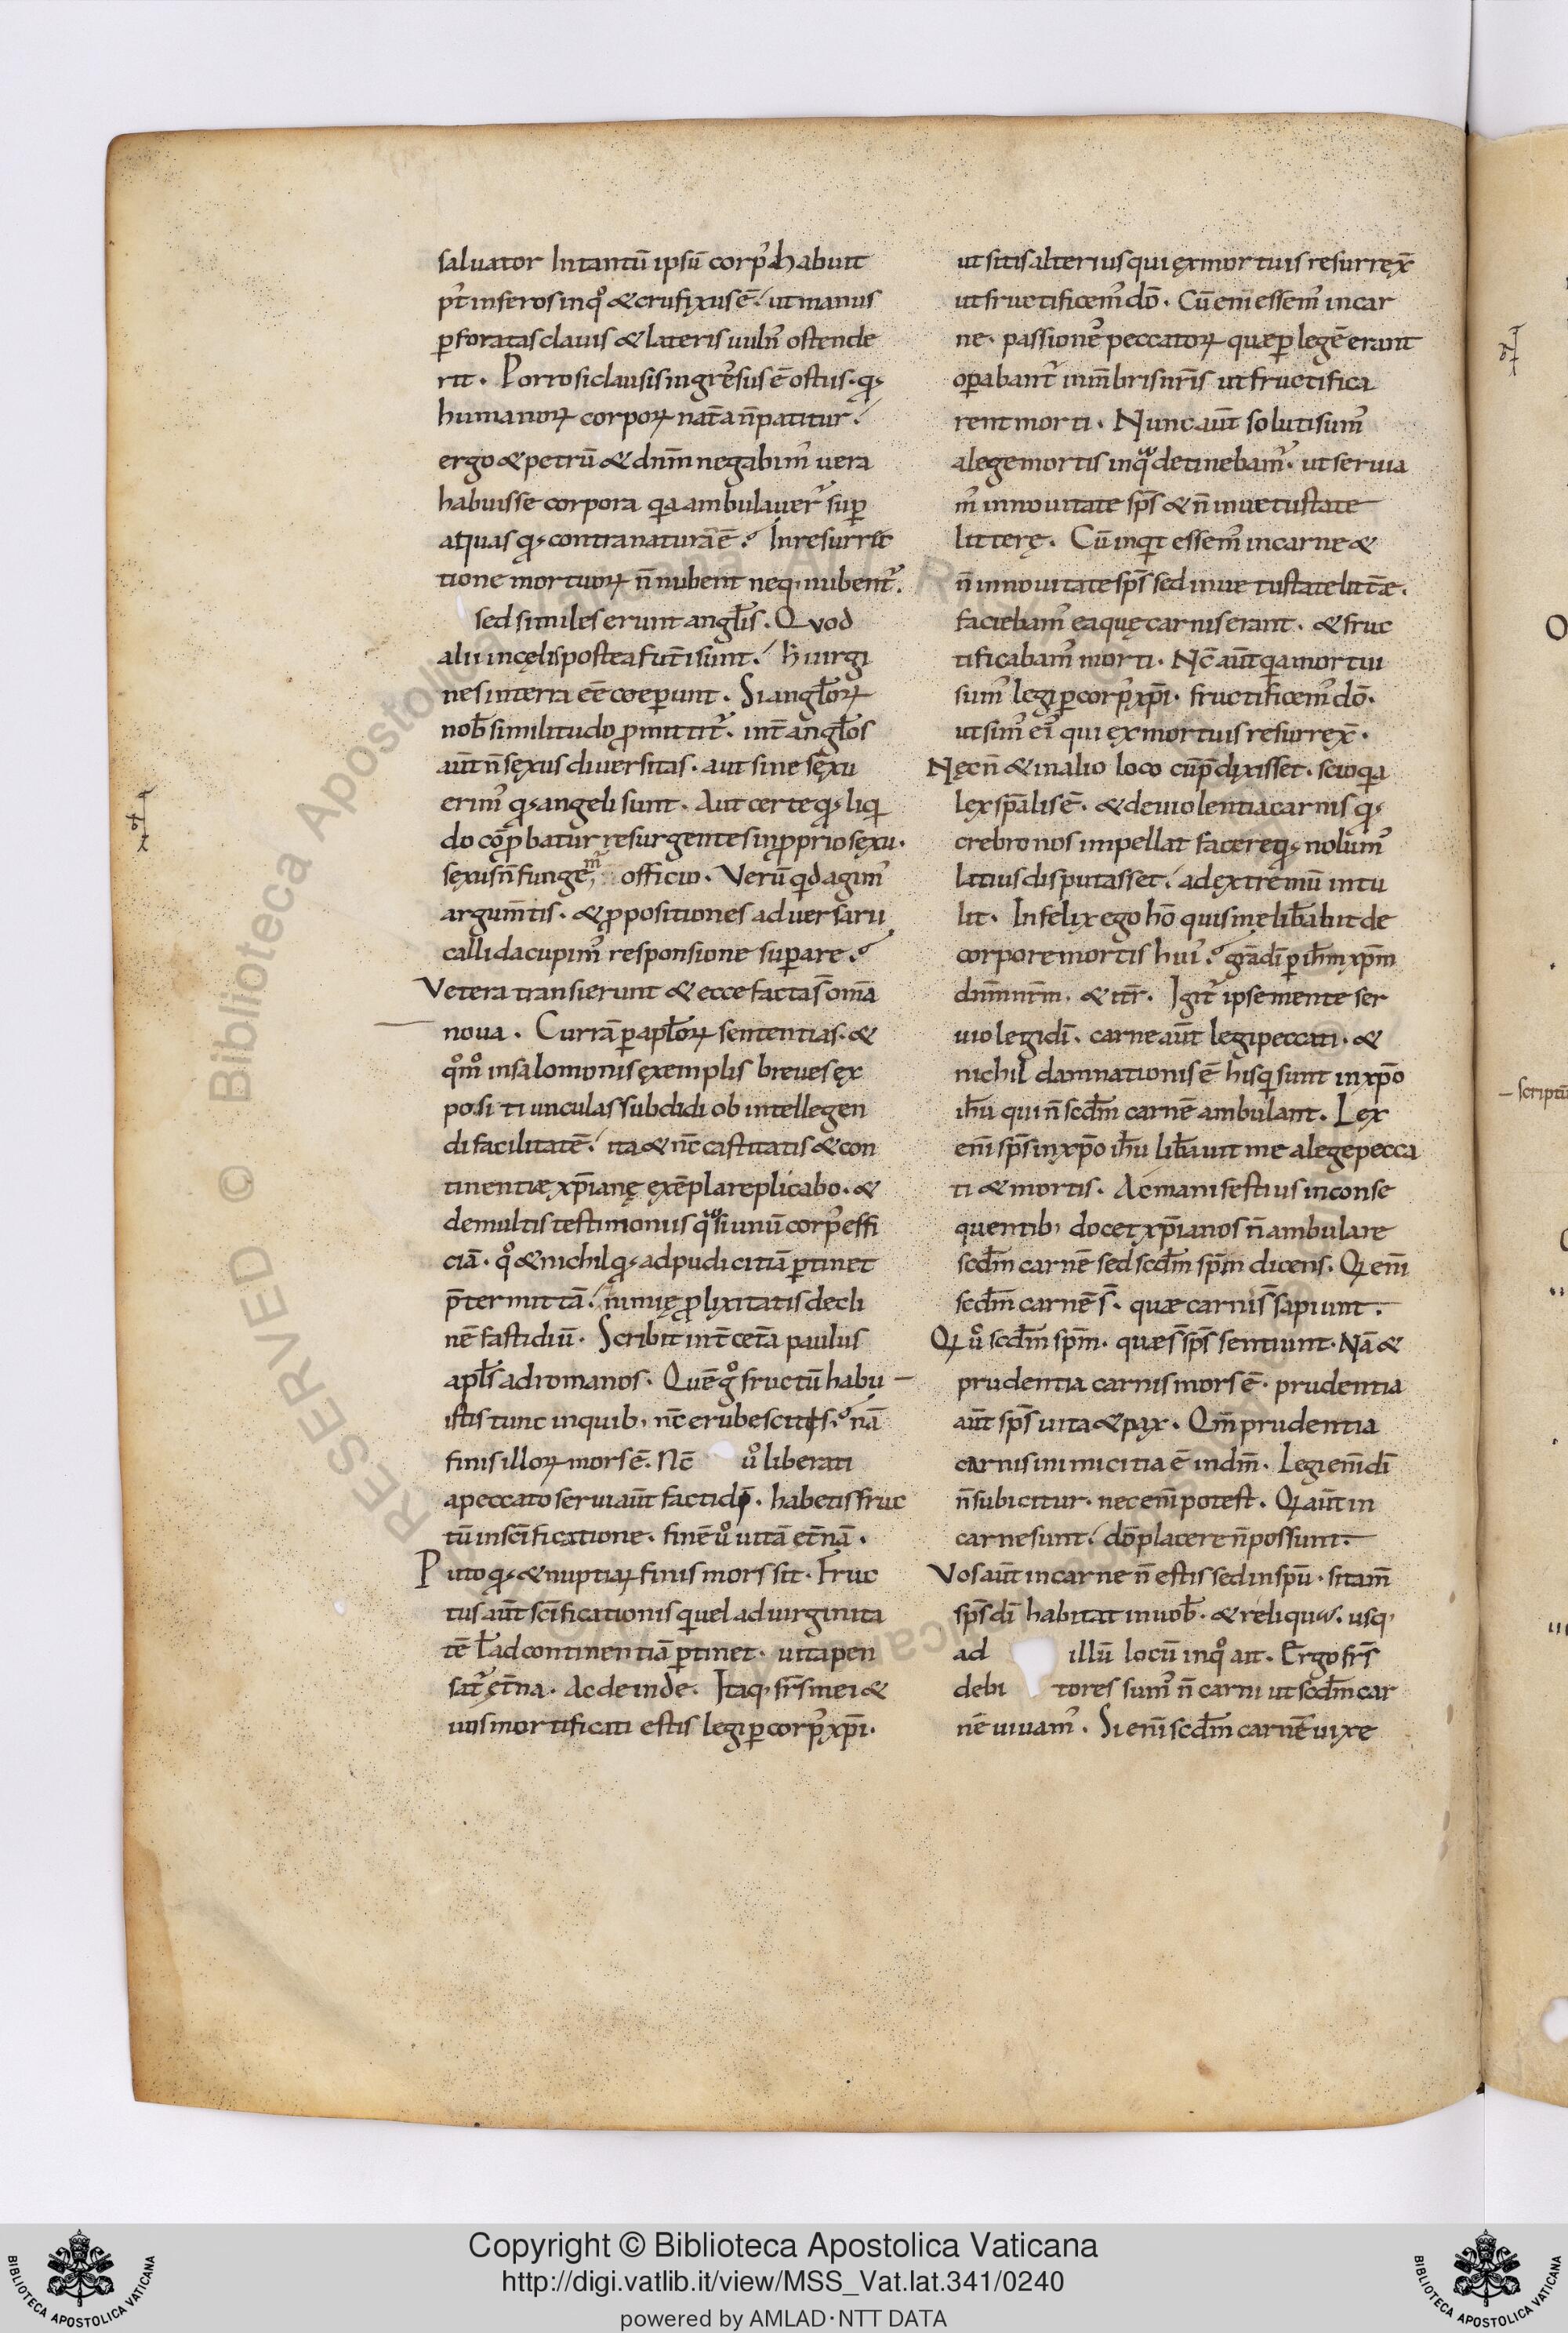 saluator Intantū ipsū corp᾽ habuit
pt᾽ inferos inqͦ & crufixus ē. ut manus
p̄foratas clauis & lateris uuln᾽ ostende
rit. Porro si clausis ingr̄esus ē ostiis. qđ
humanoꝝ corpoꝝ nat̄a n̄ patitur.
ergo & petrū & dnm̄ negabim᾽ uera
habuisse corpora qa ambulauer᾽ sup̄
aquas qđ contra naturā ē. In resurrec
tione mortuoꝝ n̄ nubent neq; nubent᾽.
sed similes erunt angl̄is. Quod
alii in cęlis postea fut̄i sunt. h̄ uirgi
nes in terra eē coep̄unt. Si angl̄oꝝ
nob̄ similitudo ꝓmittit᾽. int̄ angl̄os
aūt n̄ sęxus diuersitas. aut sine sęxu
erim᾽ qđ angeli sunt. Aut certe qđ liqi
do cōꝓbatur resurgentes in ꝓprio sęxu.
sęxus n̄ fungem᾽ officio. Verū qid agim᾽
argum̄tis. & ꝓpositiones aduersarii
callida cupim᾽ responsione sup̄are.
Vetera transierunt & ecce facta s̄ om̄a
noua. Currā p̄ apl̄oꝝ sententias. &
qͦmͦ in salomonis ęxemplis breues ęx
positiunculas subdidi ob intellegen
di facilitatē. ita & nc̄ castitatis & con
tinentiæ xp̄ianę ęxēpla replicabo. &
de multis testimoniis qͣsi unū corp᾽ effi
ciā. qͦ & nichil qđ ad pudicitiā p̄tinet
p̄termittā. nimię ꝓlixitatis decli
nē fastidiū. Scribit int̄ cet̄a paulus
apl̄s ad romanos. Quē gͦ fructū habu
istis tunc in quib; nc̄ erubescitis. nā
finis illoꝝ mors ē. Nc̄ uͦ liberati
a peccato serui aūt facti dō. habetis fruc
tū in sc̄ificatione. finē uͦ uitā et̄nā.
Puto qđ & nuptiaꝝ finis mors sit. Fruc
tus aūt sc̄ificationis qi uel ad uirginita
tē ł ad continentiā p̄tinet. uita pen
sat᾽ et̄na. Ac deinde. Itaq; fr̄s mei &
uos mortificati estis legi p̄ corp᾽ xp̄i.
ut sitis alterius qui ęx mortuis resurręx̄
ut fructificem᾽ dō. Cū enī essem᾽ in car
ne. passionē peccatoꝝ quæ p̄ legē erant
op̄abant᾽ in mēbris nr̄is ut fructifica
rent morti. Nunc aūt soluti sum᾽
a lege mortis in qͣ detinebam᾽. ut seruia
m᾽ in nouitate sp̄s & n̄ in uetustate
litterę. Cū inqit essem᾽ in carne &
n̄ in nouitate sp̄s sed in uetustate litt̄æ.
faciebam᾽ ea quę carnis erant. & fruc
tificabam᾽ morti. Nc̄ aūt qia mortui
sum᾽ legi p̄ corp᾽ xp̄i. fructificem᾽ dō.
ut sim᾽ ei᾽ qui ęx mortuis resurręx̄.
Nęcn̄ & in alio loco cū p̄dixisset. scio qia
lex sp̄alis ē. & de uiolentia carnis qđ
crebro nos impellat facere qđ nolum᾽
latius disputasset. ad ęxtremū intu
lit. Infelix ego hō quis me lib̄abit de
corpore mortis hui᾽. gr̄a dī p̄ ih̄m xp̄m
dnm̄ nr̄m. & itr̄. Igit᾽ ipse mente ser
uio legi dī. carne aūt legi peccati. &
nichil damnationis ē his qi sunt in xp̄o
ih̄u qui n̄ scdm̄ carnē ambulant. Lex
enī sp̄s in xp̄o ih̄u lib̄auit me a lege pecca
ti & mortis. Ac manifestius in conse
quentib; docet xp̄ianos n̄ ambulare
scdm̄ carnē sed scdm̄ sp̄m dicens. Qi enī
scdm̄ carnē s̄. quæ carnis s̄ sapiunt.
Qi uͦ scdm̄ sp̄m. quæ s̄ sp̄s sentiunt. Nā &
prudentia carnis mors ē. prudentia
aūt sp̄s uita & pax. Qm̄ prudentia
carnis inimicitia ē in dm̄. Legi enī dī
n̄ subicitur. nec enī potest. Qi aūt in
carne sunt. dō placere n̄ possunt.
Vos aūt in carne n̄ estis sed in sp̄u. si tam̄
sp̄s dī habitat in uob̄. & reliqua. usq;
ad illū locū in qͦ ait. Ergo fr̄s
debitores sum᾽ n̄ carni ut scdm̄ car
nē uiuam᾽. Si enī scdm̄ carnē uixe
Copyright © Biblioteca Apostolica Vaticana
http://digi.vatlib.it/view/MSS_Vat.lat.341/0240
powered by AMLAD·NTT DATA